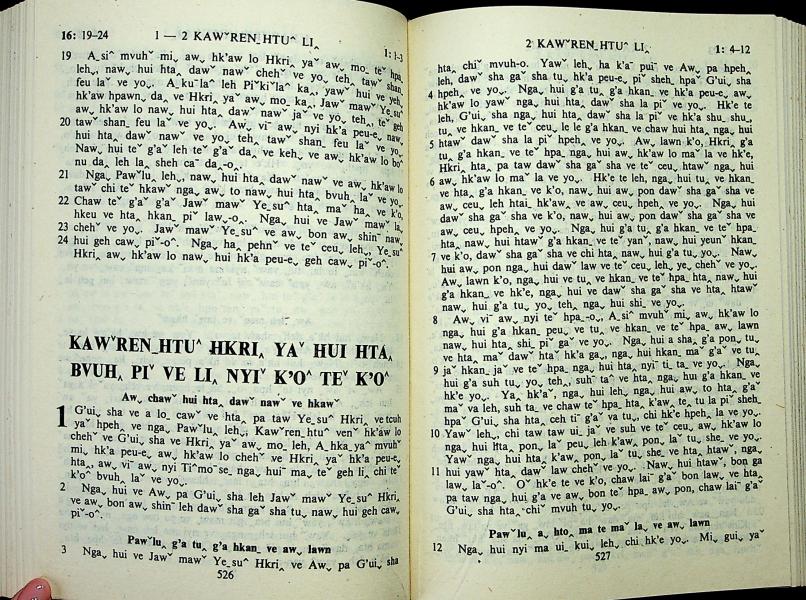 16: 19–24 1 — 2 KAWˇREN_HTU^ LI‸ 1: 1–3
19 A_si^ mvuhˇ mi‸ aw‸ hk'aw lo Hkri‸ yaˇ aw‸ mo_ teˇ hpa‸
leh‸, naw‸ hui hta‸ dawˇ nawˇ chehˇ ve yo‸. teh‸ tawˇ shan_
feu laˇ ve yo‸. A_ku^la^ leh Piˇki^la^ ka‸, yawˇ hui ve yeh‸
hk'aw hpawn‸ da‸ ve Hkri‸ yaˇ aw‸ mo_ ka‸, Jawˇ mawˇ Ye_su^
aw‸ hk'aw lo naw‸ hui hta‸ dawˇ nawˇ jaˇ ve yo‸, teh‸, teˇ geh
20 tawˇ shan_ feu laˇ ve yo‸. Aw‸ vi¯ aw‸ nyi hk'a peu-e‸ naw‸
hui hta‸ dawˇ nawˇ ve yo‸ teh‸ tawˇ shan_ feu laˇ ve yo‸.
Naw‸ hui teˇ g'a‸ leh teˇ g'aˇ da‸ ve keh‸ ve aw‸ hk'aw lo boˇ
nu da‸ leh la‸ sheh caˇ da_-o‸.
21 Nga‸ Pawˇlu‸ leh‸, naw‸ hui hta‸ dawˇ nawˇ ve aw‸ hk'aw lo
tawˇ chi teˇ hkawˇ nga‸ aw‸ to naw‸ hui hta‸ bvuh‸ laˇ ve yo‸.
22 Chaw teˇ g'aˇ g'aˇ Jawˇ mawˇ Ye_su^ hta‸ maˇ ha‸ ve k'o‸,
hkeu ve hta‸ hkan_ piˇ law‸-o^. Nga‸ hui ve Jawˇ mawˇ la‸
23 chehˇ ve yo‸. Jawˇ mawˇ Ye_su^ ve aw‸ bon aw‸ shin¯ naw‸
24 hui geh caw‸ piˇ-o^. Nga‸ ha‸ pehn^ ve teˇ ceu‸ leh‸, Ye_su^
Hkri‸ aw‸ hk'aw lo naw‸ hui hk'a peu-e‸ geh caw‸ piˇ-o^.
KAWˇREN_HTU^ HKRI‸ YAˇ HUI HTA‸
BVUH‸ PIˇ VE LI‸ NYIˇ K'O^ TEˇ K'O^
Aw‸ chawˇ hui hta‸ dawˇ nawˇ ve hkawˇ
1 G'ui‸ sha ve a lo_ cawˇ ve hta‸ pa taw Ye_su^ Hkri‸ ve tcuh
yaˇ hpeh‸ ve nga‸ Pawˇlu‸ leh‸; Kawˇren_htu^ venˇ hk'aw lo
chehˇ ve G'ui‸ sha ve Hkri‸ yaˇ aw‸ mo_ leh‸ A_hka_ya^ mvuhˇ
mi‸ hk'a peu-e‸ aw‸ hk'aw lo chehˇ ve Hkri‸ yaˇ hk'a peu-e‸
hta‸, aw‸ vi¯ aw‸ nyi Ti^mo¯se_ nga‸ hui¯ ma‸ teˇ geh li‸ chi teˇ
k'o^ bvuh‸ laˇ ve yo‸.
2 Nga‸ hui ve Aw‸ pa G'ui‸ sha leh Jawˇ mawˇ Ye_su^ Hkri‸
ve aw‸ bon aw‸ shin¯ leh dawˇ sha gaˇ sha tu‸ naw‸ hui geh caw‸
piˇ-o^.
Pawˇlu‸ g'a tu‸ g'a hkan_ ve aw‸ lawn
3 Nga‸ hui ve Jawˇ mawˇ Ye_su^ Hkri‸ ve Aw‸ pa G'ui‸ sha
526
2 KAWˇREN_HTU^ LI‸ 1: 4–12
hta‸ chiˇ mvuh-o. Yawˇ leh‸ ha k'aˇ pui¯ ve Aw‸ pa hpeh‸
leh‸ daw^ sha gaˇ sha tu‸ hk'a peu-e‸ piˇ sheh_ hpaˇ G'ui‸ sha
4 hpeh‸ ve yo‸. Nga‸ hui g'a tu‸ g'a hkan_ ve hk'a peu-e‸ aw‸
hk'aw lo yawˇ nga‸ hui hta‸ dawˇ sha la piˇ ve yo‸. Hk'e te
leh, G'ui‸ sha nga‸ hui hta‸ dawˇ sha la piˇ ve hk'a shu_ shu‸
tu‸ ve hkan_ ve teˇ ceu‸ le le g'a hkan_ ve chaw hui hta‸ nga‸ hui
5 htawˇ dawˇ sha la piˇ hpeh‸ ve yo‸. Aw‸ lawn k'o‸ Hkri‸ g'a
tu‸ g'a hkan_ ve teˇ hpa_ nga‸ hui aw‸ hk'aw lo maˇ la ve hk'e‸
Hkri‸ hta‸ pa taw dawˇ sha gaˇ sha ve teˇ ceu‸ htawˇ nga‸ hui
6 aw‸ hk'aw lo maˇ la ve yo‸. Hk'e te leh, nga‸ hui tu‸ ve hkan_
ve hta‸ g'a hkan_ ve k'o‸ naw‸ hui aw‸ pon dawˇ sha gaˇ sha ve
aw‸ ceu‸ leh htai‸ hk'awˇ ve aw‸ ceu‸ hpeh‸ ve yo‸. Nga‸ hui
dawˇ sha gaˇ sha ve k'o‸ naw‸ hui aw‸ pon dawˇ sha gaˇ sha ve
aw‸ ceu‸ hpeh‸ ve yo‸. Nga‸ hui g'a tu‸ g'a hkan_ ve teˇ hpa_
hta‸ naw‸ hui htawˇ g'a hkan_ ve teˇ yanˇ, naw‸ hui yeunˇ hkan_
7 ve k'o‸ dawˇ sha gaˇ sha ve chi hta‸ naw‸ hui g'a tu‸ yo‸. Naw‸
hui aw‸ pon nga‸ hui dawˇ law ve teˇ ceu‸ leh‸ ye‸ chehˇ ve yo‸.
Aw‸ lawn k'o‸ nga‸ hui ve tu‸ ve hkan_ ve teˇ hpa_ hta‸ naw‸ hui
g'a hkan_ ve hk'e‸ nga‸ hui ve dawˇ sha gaˇ sha ve hta‸ htawˇ
naw‸ hui g'a tu‸ yo‸ teh‸ nga‸ hui shi‸ ve yo‸.
8 Aw‸ vi¯ aw‸ nyi teˇ hpa_-o‸, A_si^ mvuhˇ mi‸ aw‸ hk'aw lo
nga‸ hui g'a hkan_ peu‸ ve tu‸ ve hkan_ ve teˇ hpa_ aw‸ lawn
naw‸ hui hta‸ shi_ piˇ gaˇ ve yo‸. Nga‸ hui a sha‸ g'a pon‸ tu‸
ve hta‸ maˇ dawˇ htaˇ hk'a ga‸ nga‸ hui hkan_ maˇ g'aˇ ve tu‸
9 jaˇ hkan_ jaˇ ve teˇ hpa_ nga‸ hui hta‸ nyi¯ ti_ ta_ ve yo‸. Nga‸
hui g'a suh tu‸ yo‸ teh‸ suh¯ ta^ ve hta‸ nga‸ hui g'a hkan_ ve
hk'e yo‸. Ya‸ hk'aˇ, nga‸ hui leh‸ nga‸ hui aw‸ to hta‸ g'aˇ
maˇ va leh, suh ta_ ve chaw teˇ hpa_ hta‸ k'aw_ te‸ tu la piˇ sheh_
hpaˇ G'ui‸ sha hta‸ ceh ti¯ g'aˇ va tu‸ chi hk'e hpeh‸ la ve yo‸.
10 Yawˇ leh‸ chi taw taw ui‸ jaˇ ve suh ve teˇ ceu‸ aw‸ hk'aw lo
nga‸ hui hta‸ pon‸ laˇ peu‸ leh k'aw‸ pon‸ laˇ tu‸ she_ ve yo‸.
Yawˇ nga‸ hui hta‸ k'aw‸ pon‸ laˇ tu‸ she_ ve hta‸ htawˇ, nga‸
11 hui yawˇ hta‸ dawˇ law chehˇ ve yo‸. Naw‸ hui htawˇ, bon ga
law‸ laˇ-o^. Oˇ hk'e te ve k'o‸ chaw lai¯ g'aˇ bon law‸ ve hta‸
pa taw nga‸ hui g'a ve aw‸ bon teˇ hpa_ aw‸ pon‸ chaw lai¯ g'aˇ
G'ui‸ sha hta‸ chiˇ mvuh tu‸ yo‸.
Pawˇlu‸ a‸ hto‸ ma te maˇ la‸ ve aw‸ lawn
12 Nga‸ hui nyi ma ui_ kui‸ leh‸ chi hk'e yo‸. Mi‸ gui‸ yaˇ
527